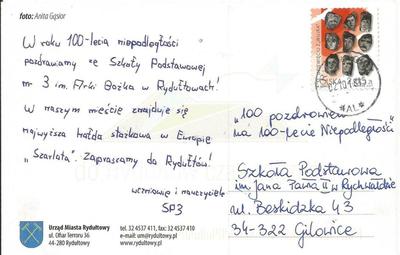 foto: Anita Gąsior
W roku 100-lecia niepodległości
pozdrawiamy ze Szkoły Podstawowej
nr 3 im. Al-ki Bożka w Rydułtowach!
W naszym mieście znajduje się
najwyższa hałda stożkowa w Europie
„Szarlota". Zapraszamy do Rydułtów!
uczniowie i nauczyciele
SP3
Urząd Miasta Rydułtowy
ul. Ofiar Terroru 36
44-280 Rydułtowy
tel. 32 4537 411, fax: 32 4537 410
e-mail: um@rydultowy.pl
www.rydultowy.pl
"100 pozdrowień
na 100-lecie Niepodległości"
Szkoła Podstawowa
im. Jana Pawła II w Rychwałdzie
ul. Beskidzka 43
34-322 Gilowice